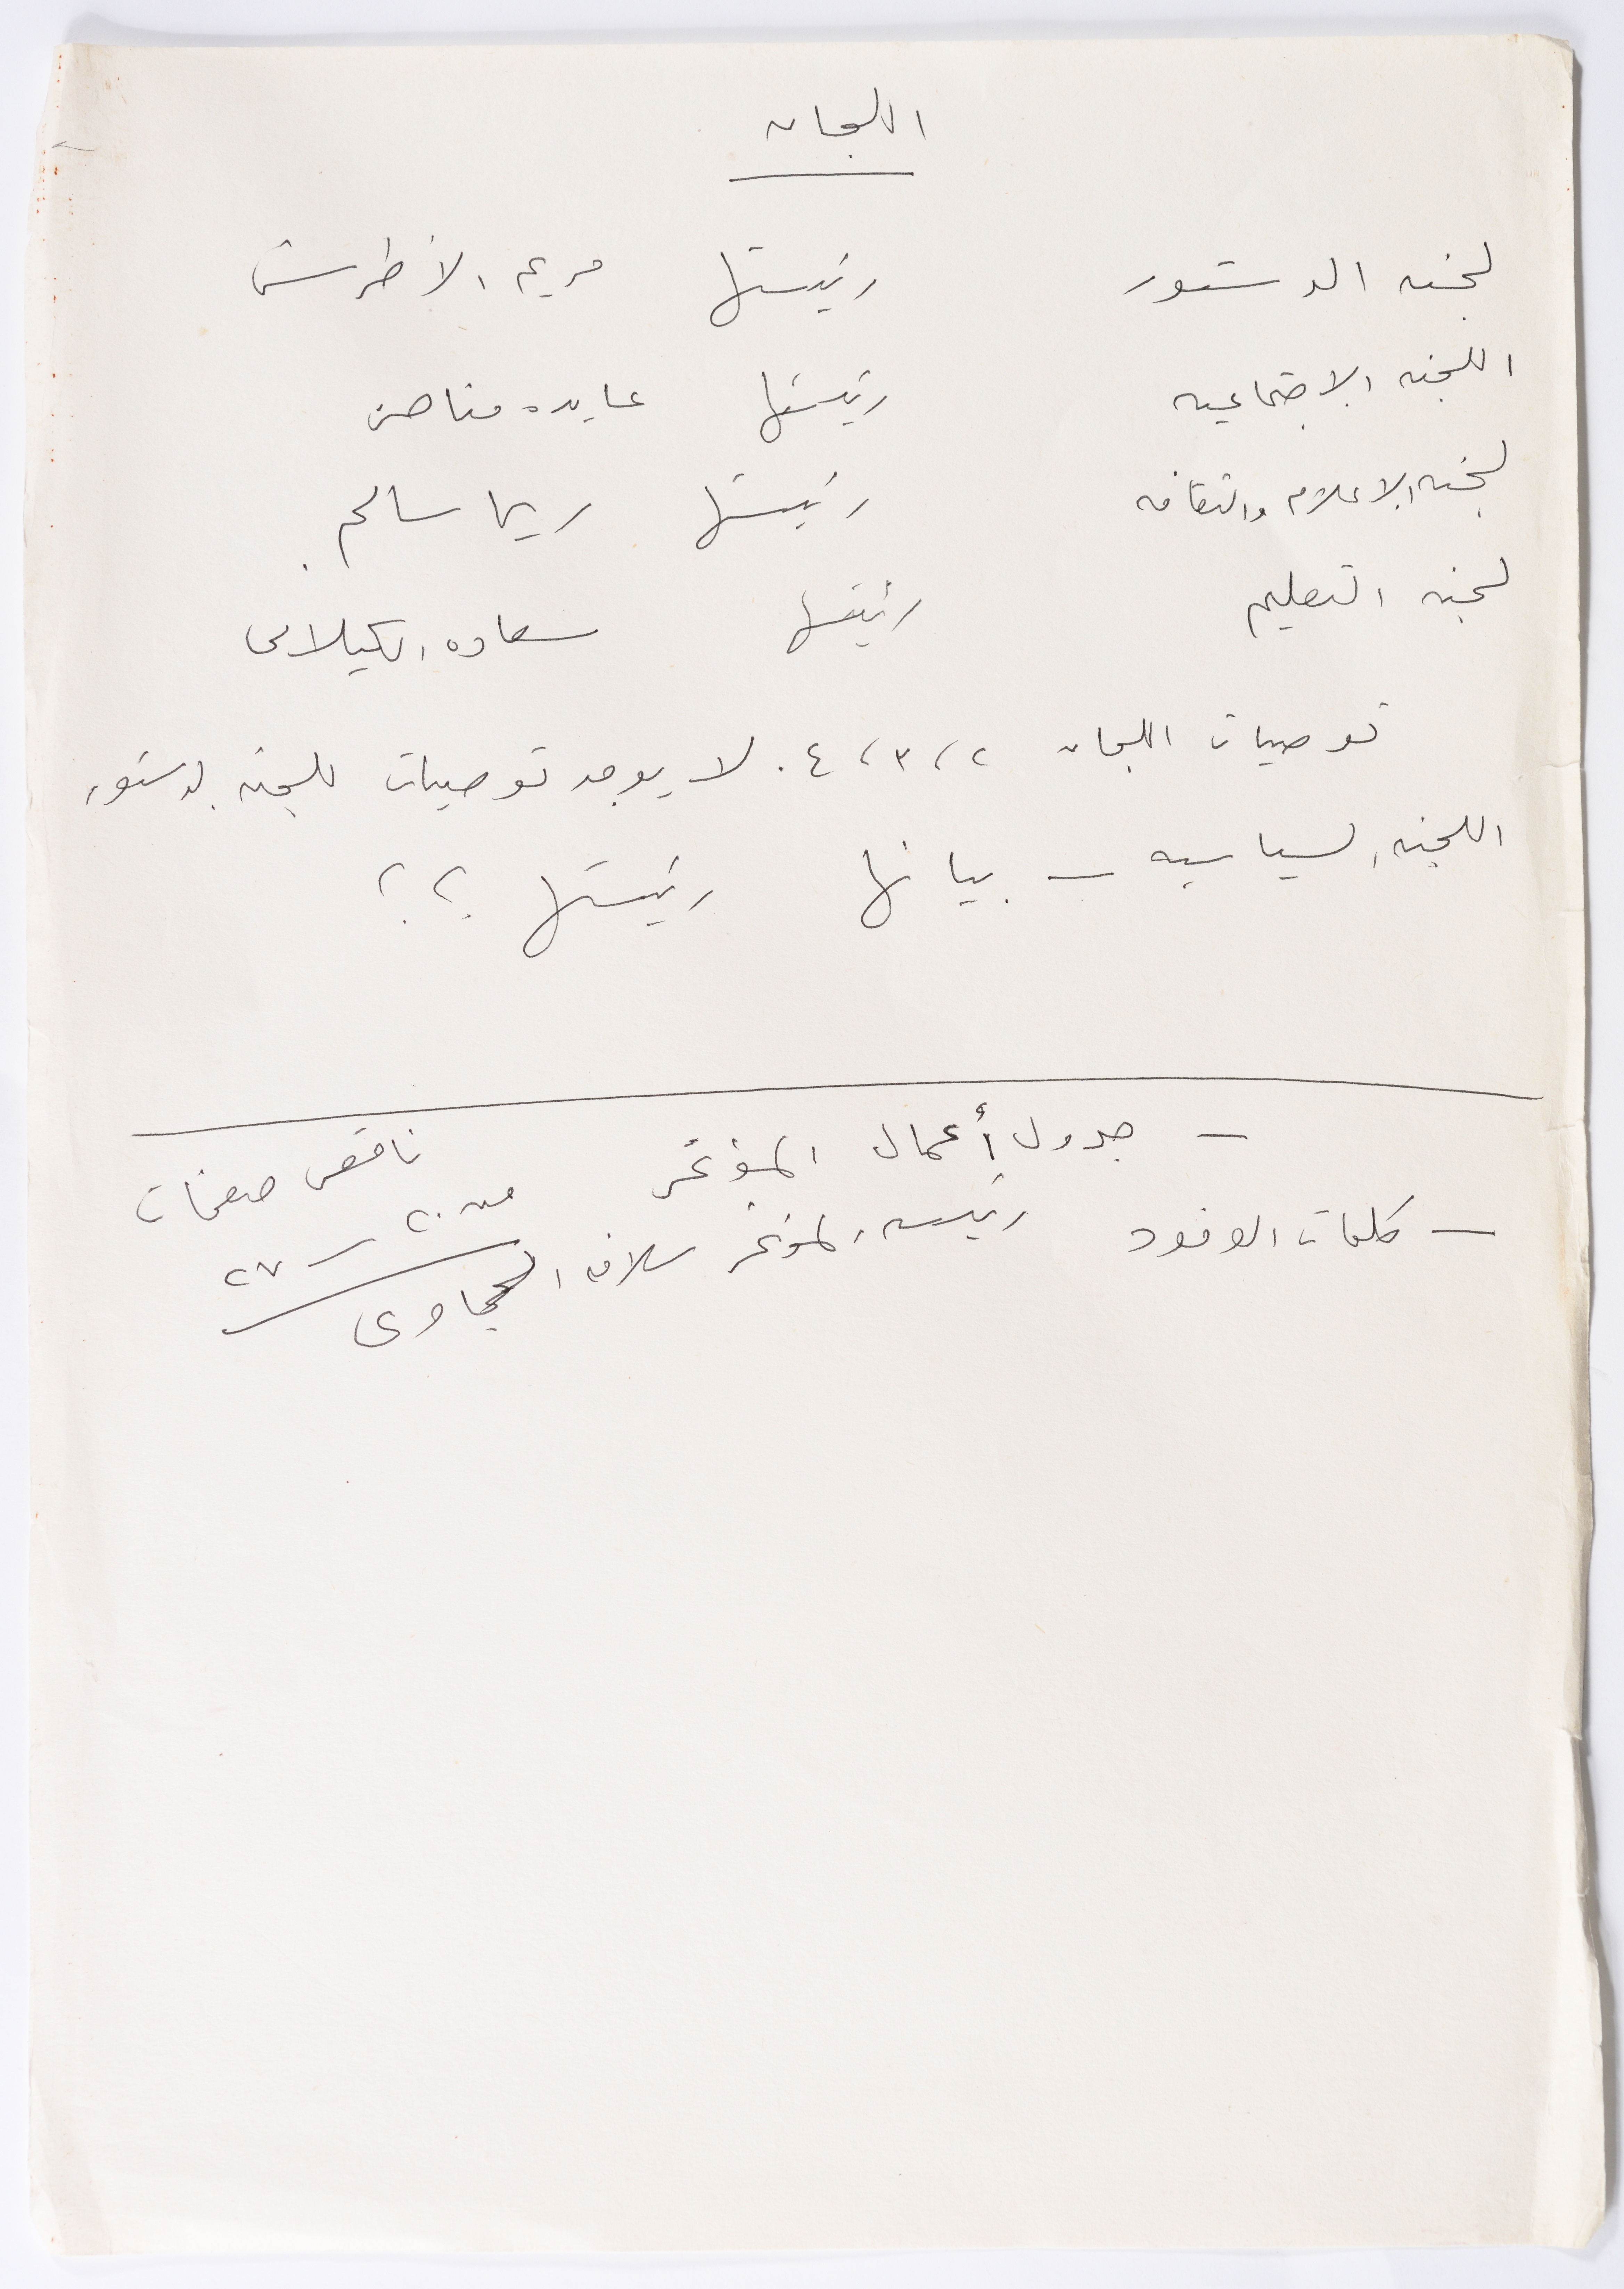 اللجان
لجنه الدستور رئيستها مريم الأطرش
اللجنه الاجتماعيه رئيستها عايده مناصره
لجنه الاعلام والثقافه رئيستها ريما سالم
لجنه التعليم رئيستها سعاده الكيلاني
توصيات اللجان ٢، ٣، ٤. لا يوجد توصيات للجنه الدستور
اللجنه السياسيه – بيانها رئيستها ؟؟
– جدول أعمال المؤتمر
– كلمات الوفود رئيسه المؤتمر سلافه الحجاوي
ناقص صفحات
من ٢٠ – ٢٧